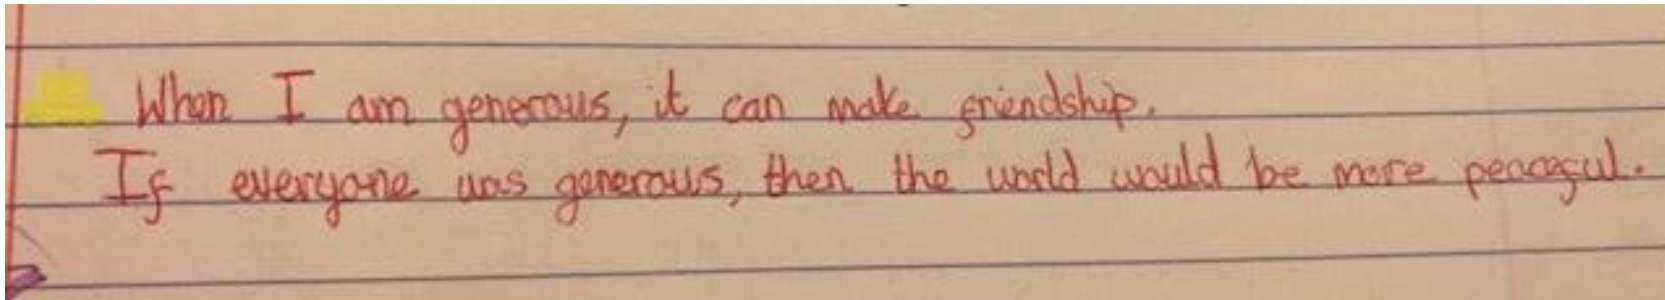 When I am generous, it can make friendship.
If everyone was generous, then the world would be more peaceful.